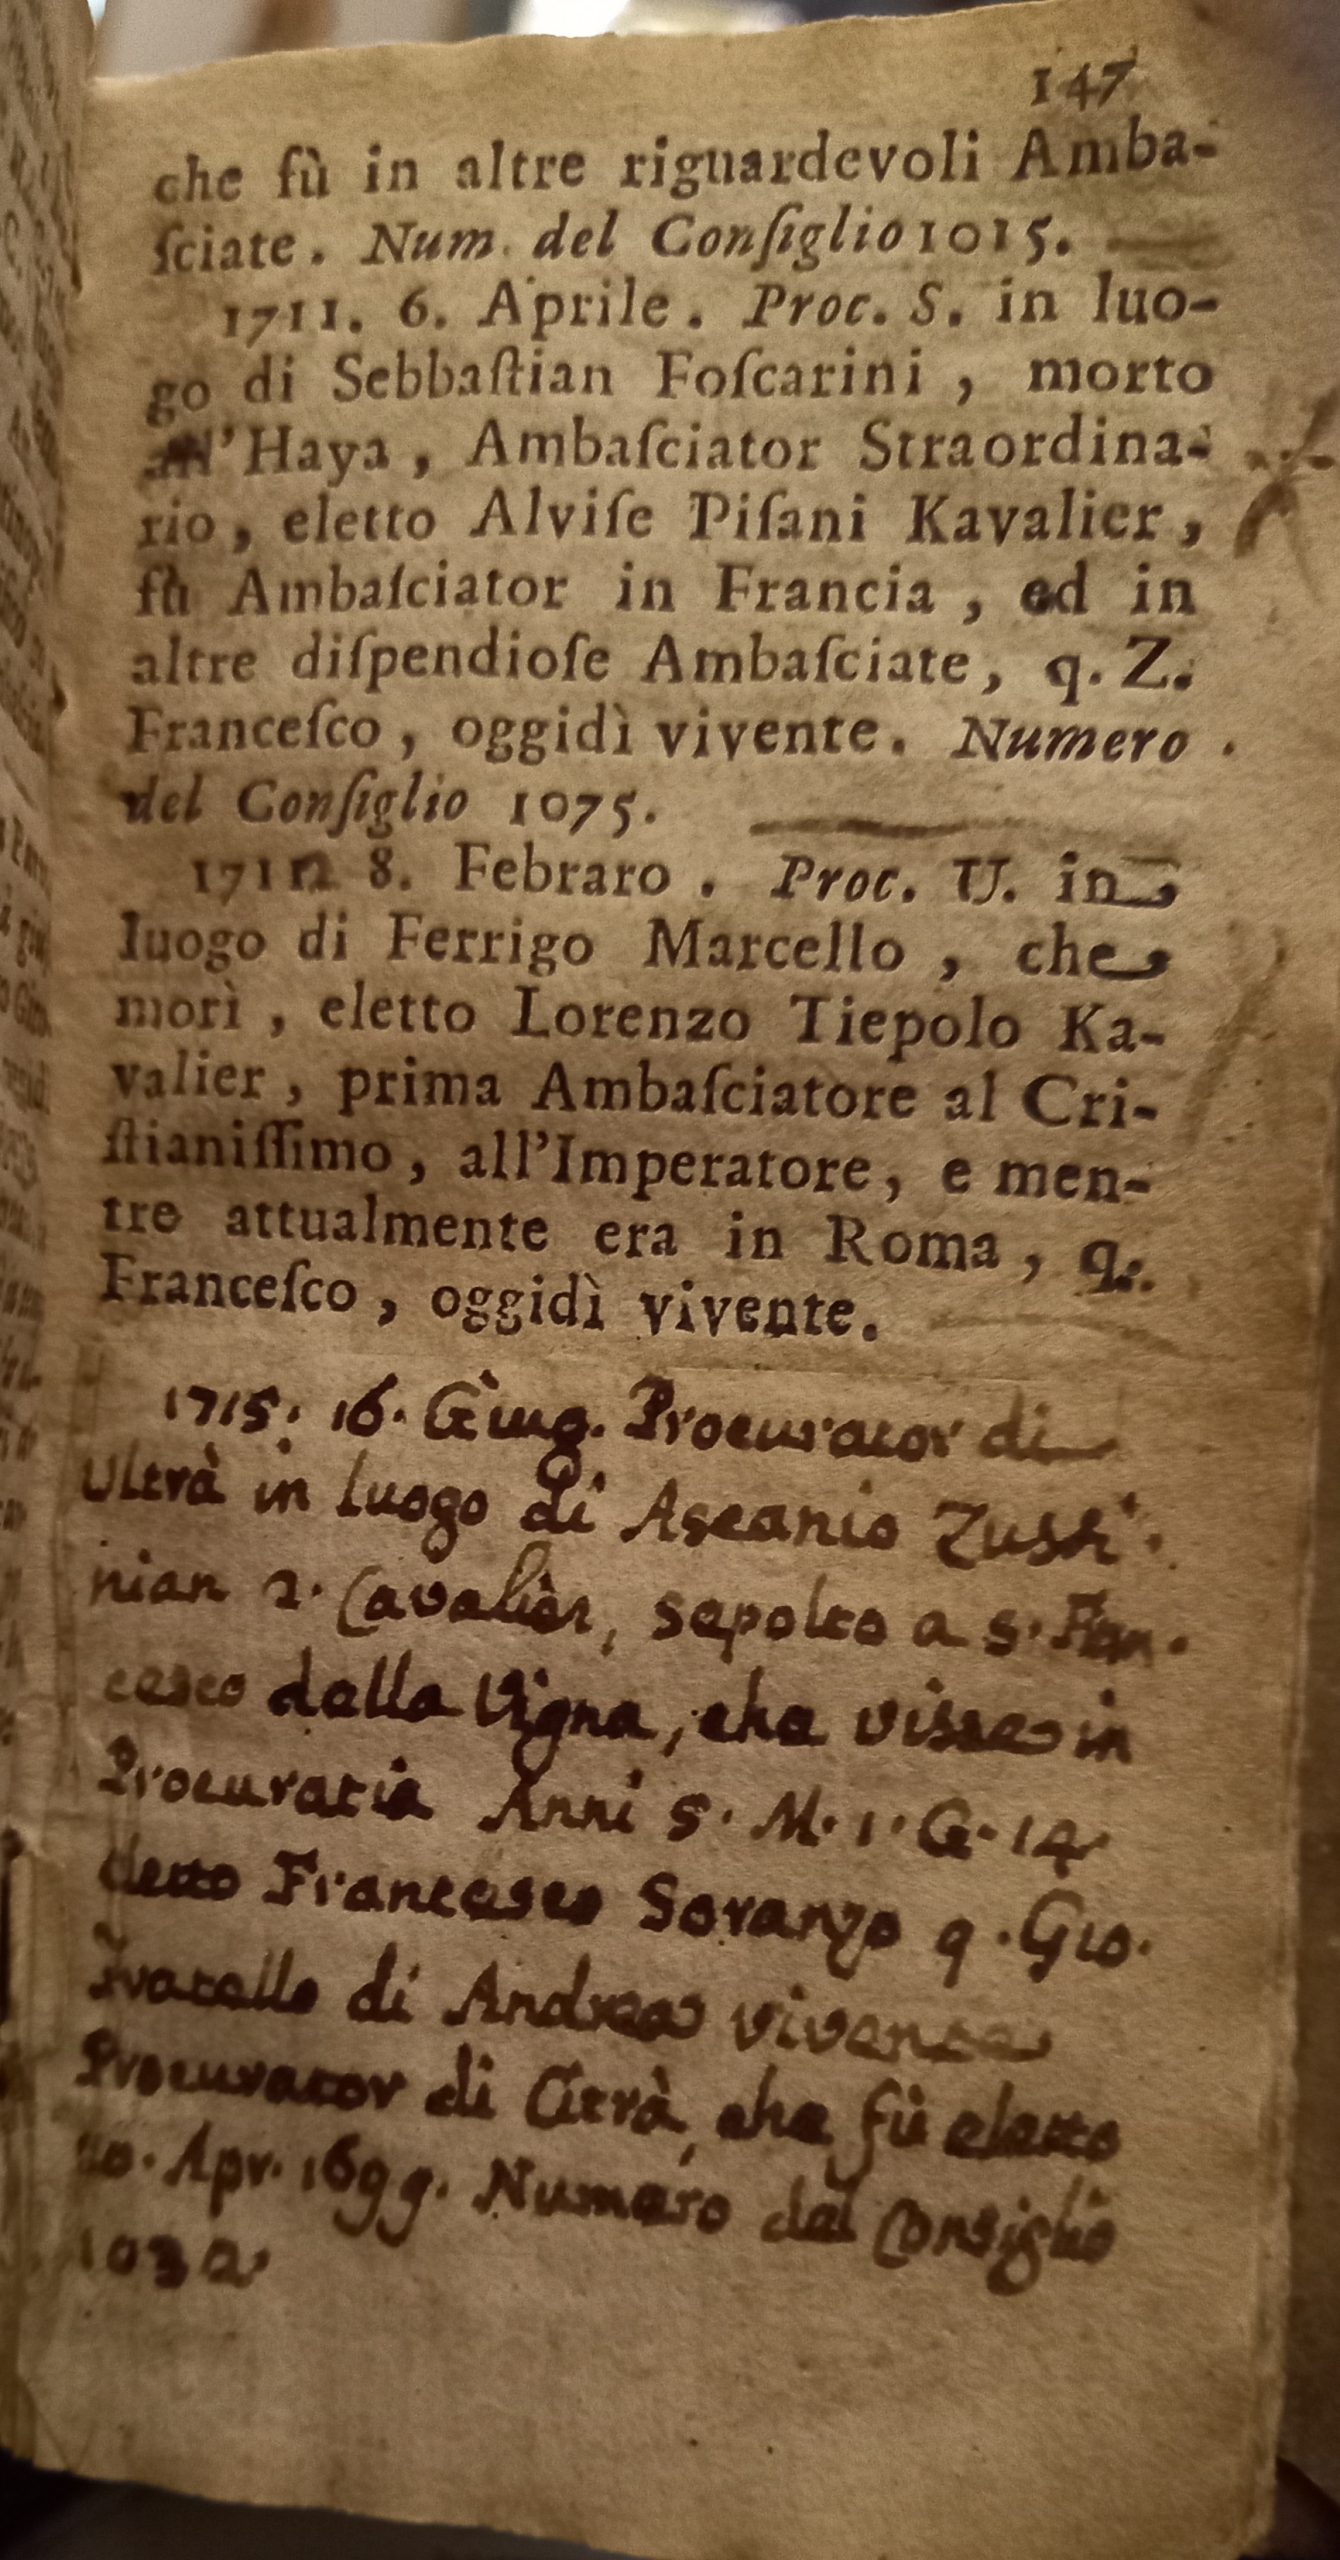 147
che fù in altre riguardevoli Amba-
ſciate. Num. del Conſiglio 1015.
1711. 6. Aprile. Proc. S. in luo-
go di Sebbaſtian Foſcarini, morto
all'Haya, Ambaſciator Straordina-
rio, eletto Alviſe Piſani Kavalier,
fù Ambaſciator in Francia, ed in
altre diſpendioſe Ambaſciate, q. Z.
Franceſco, oggidì vivente. Numero
del Conſiglio 1075.
8. Febraro. Proc. U. in
luogo di Ferrigo Marcello, che
morì, eletto Lorenzo Tiepolo Ka-
valier, prima Ambaſciatore al Cri-
ſtianiſſimo, all'Imperatore, e men-
tre attualmente era in Roma, q.
Franceſco, oggidì vivente.
1715. 16. Giug. Procurator di
Ultrà in luogo di Ascanio Zusti.
nian 2. Cavalièr, sepolto a S. Fran.
cesco della Vigna, che visse in
Procuratia Anni 5. M. 1. G. 14
detto Francesco Soranzo q. Gio.
Fratello di Andrea vivente
Procurator di Citrà, che fù eletto
Apr. 1699. Numero del Consiglio